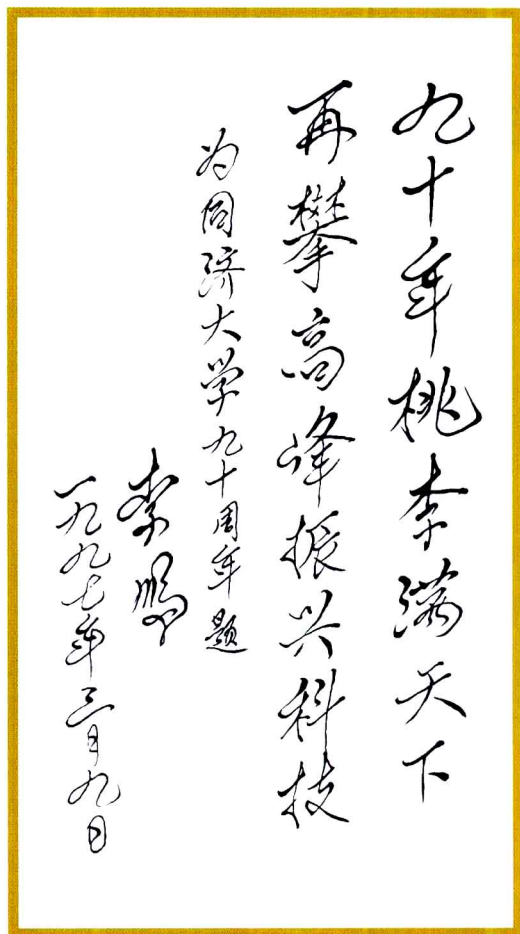 九十年桃李满天下
再攀高峰振兴科技
为同济大学九十周年题
李鹏
一九九七年三月九日